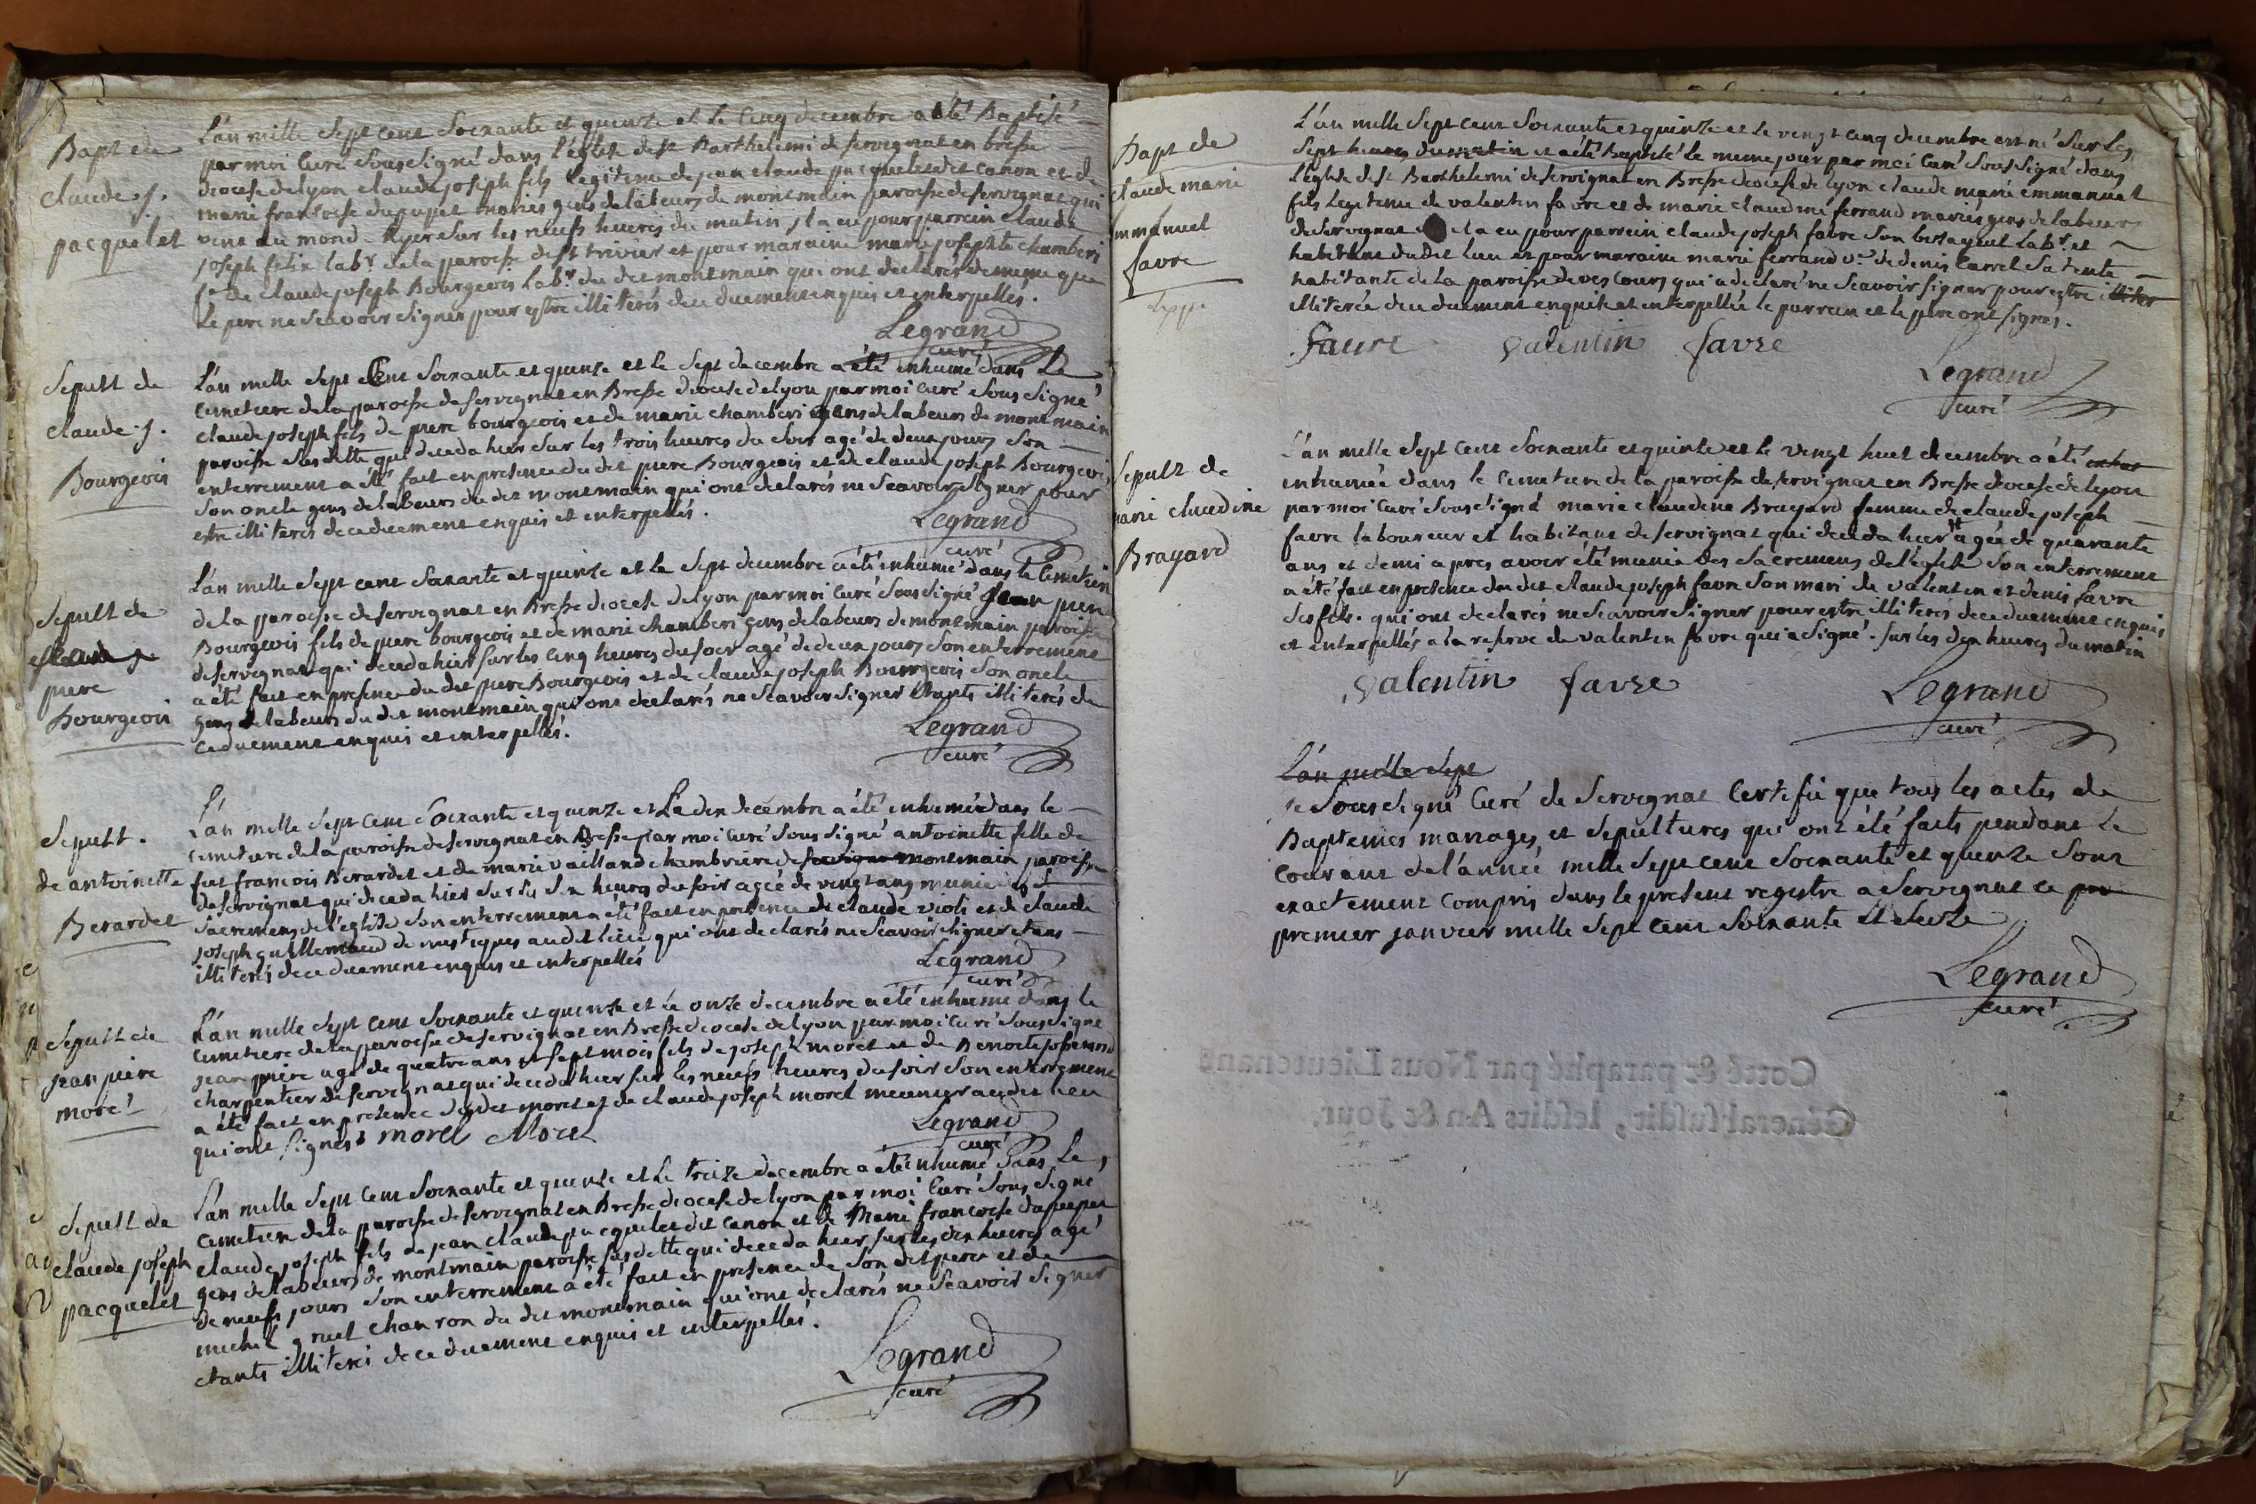 Bapt de
claude j.
pacquelet
L'an mille sept cent soixante et quinze et le cinq decembre a été Baptisé
par moi Curé sous signé dans l'église de st Barthelemi de servignat en bresse
diocese de lyon claude joseph fils legitime de jean claude pacquelet dit canon et de
marie francoise dupupet mariés gens de labeurs de montmain paroisse de servignat qui
vint au monde hyer sur les neufs heures du matin il a eu pour parrein claude
joseph felix labr. de la paroisse de st trivier et pour maraine marie josephte chamberi
fe de claude joseph Bourgeois labr. du dit montmain qui ont declarés de meme que
le pere ne scavoir signer pour estre illiterés de ce duement enquis et interpellés.
Legrand
curé
Sepult de
claude j.
Bourgeois
L'an mille sept Cent soixante et quinze et le sept decembre a été inhumé dans le
cimetiere de la paroisse de servignat en Bresse diocese de lyon par moi curé sous signé
claude joseph fils de piere bourgeois et de marie chamberi gens de labeurs de montmain
paroisse susditte qui deceda hier sur les trois heures du soir agé de deux jours son
enterrement a été fait en presence du dit piere Bourgeois et de claude joseph Bourgeois
son oncle gens de labeurs du dit montmain qui ont declarés ne scavoir signer pour
estre illiterés de ce duement enquis et interpellés.
Legrand
curé
Sepult de
claude j
piere
Bourgeois
L'an mille sept cent soixante et quinze et le sept decembre a été inhumé dans le cimetiere
de la paroisse de servignat en Bresse diocese de lyon par moi curé sous signé jean piere
Bourgeois fils de piere bourgeois et de marie chamberi gens de labeurs de montmain paroisse
de servignat qui deceda hier sur les cinq heures du soir agé de deux jours son enterrement
a été fait en presence du dit piere Bourgeois et de claude joseph Bourgeois son oncle
gens de labeurs du dit montmain qui ont declarés ne scavoir signer etants illiterés de
ce duement enquis et interpellés.
Legrand
curé
Sepult.
de antoinette
Berardet
L'an mille sept cent soixante et quinze et Le dix decembre a été inhumée dans le
cimetiere de la paroisse de servignat en Bresse par moi curé sous signé antoinette fille de
fut francois Berardet et de marie vailland chambriere de servignat montmain paroisse
de servignat qui deceda hier sur les six heures du soir agée de vingt ans munie des s
sacremens de l'eglise son enterrement a été fait en presence de claude violi et de claude
joseph guillemaud domestiques audit lieu qui ont declarés ne scavoir signer etans
illiterés de ce duement enquis et interpellés
Legrand
curé
Sepult de
jean piere
morel
L'an mille sept cent soixante et quinze et le onze decembre a été inhumé dans le
cimetiere de la paroisse de servignat en Bresse diocese de lyon par moi curé sous signé
jean piere agé de quatre ans et sept mois fils de joseph morel et de Benoite josserand
charpentier de servignat qui deceda hier sur les neufs heures du soir son enterrement
a été fait en presence du dit morel et de claude joseph morel meunier audit lieu
qui ont signés morel Morel
Legrand
curé
Sepult de
claude joseph
pacquelet
L'an mille sept cent soixante et quinze et Le treize decembre a été inhumé dans Le
cimetiere de la paroisse de servignat en Bresse diocese de lyon par moi curé sous signé
claude joseph fils de jean claude pacquelet dit canon et de Marie francoise dupupet
gens de labeurs de montmain paroisse susditte qui deceda hier sur les dix heures agé
de neufs jours son enterrement a été fait en presence de son dit pere et de
michel nuel charron du dit montmain qui ont declarés ne scavoir signer
etants illiterés de ce duement enquis et interpellés.
Legrand
curé
Bapt de
claude marie
emmanuel
favre
L'an mille sept cent soixante et quinze et le vingt cinq decembre est né sur Les
sept heures du matin et a été baptisé le meme jour par moi curé sous signé dans
l'eglise de st Barthelemi de servignat en Bresse diocese de lyon claude marie emmanuel
fils legitime de valentin favre et de marie claudine ferrand mariés gens de labeurs
de servignat il a eu pour parrein claude joseph favre son bisayeul labr. et
habitant dudit lieu et pour maraine marie ferrand ve. de denis carrel sa tente
habitante de la paroisse de vescours qui a declaré ne scavoir signer pour estre illiter
illiterée de ce duement enquise et interpellée le parrein et le pere ont signés.
favre valentin favre
Legrand
curé
Sepult de
marie claudine
Brayard
L'an mille sept cent soixante et quinze et le vingt huit decembre a été inhu
inhumée dans le cimetiere de la paroisse de servignat en Bresse diocese de lyon
par moi curé sous signé marie claudine Brayard femme de claude joseph
favre laboureur et habitant de servignat qui deceda hier agée de quarante
ans et demi apres avoir été munie des sacremens de l'église son enterrement
a été fait en presence du dit claude joseph favre son mari de valentin et denis favre
ses fils. qui ont declarés ne scavoir signer pour estre illiterés de ce duement enquis
et interpellés a la reserve de valentin favre qui a signé. sur les dix heures du matin
valentin favre
Legrand
curé
L'an mille sept
je sous signé curé de servignat certifie que tous les actes de
Baptemes mariages et sepultures qui ont été faits pendant le
courant de l'année mille sept cent soixante et quinze sont
exactement compris dans le present registre a servignat ce pre
premier janvier mille sept cent soixante et seize
Legrand
curé
Cotté & paraphé par Nous Lieutenant
Général susdit, lesdits An & Jour.